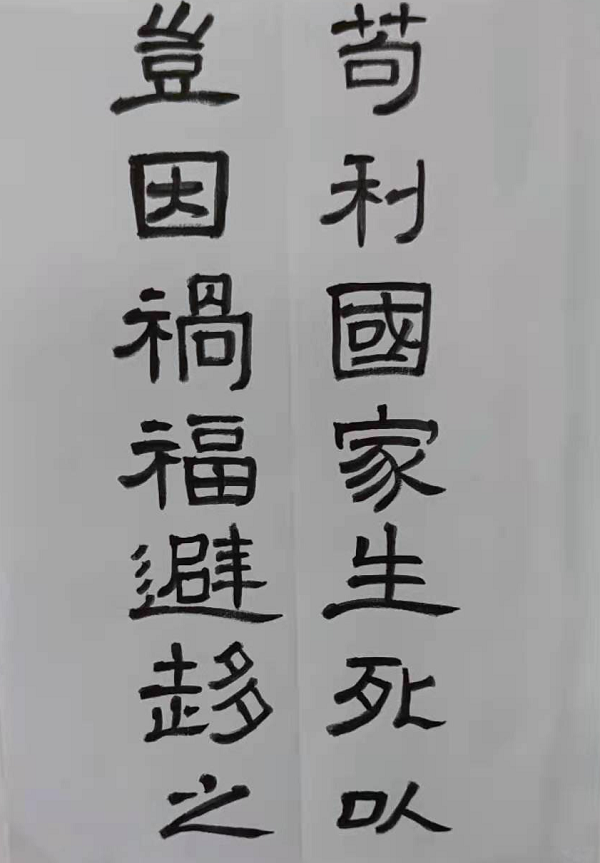 苟利國家生死以
豈因禍福避趍之